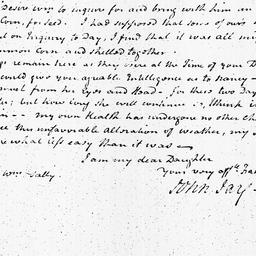 Desire Wm. to inquire for and bring with him an
Corn, for seed. I had supposed that some of ours
on Inquiry to Day, I find that it was all mi
ommon Corn and shelled together.
remain here as they were at the Time of your D
could give you agreable Intelligence as to Nancy
from her Eyes and Head - for these two Day
but how long she will continue so, I think
my own Health has undergone no other Ch
this unfavorable alteration of weather, my
what less easy than it was —
I am my dear Daughter
Your very afft. Fa
Wm. Sally
John Jay